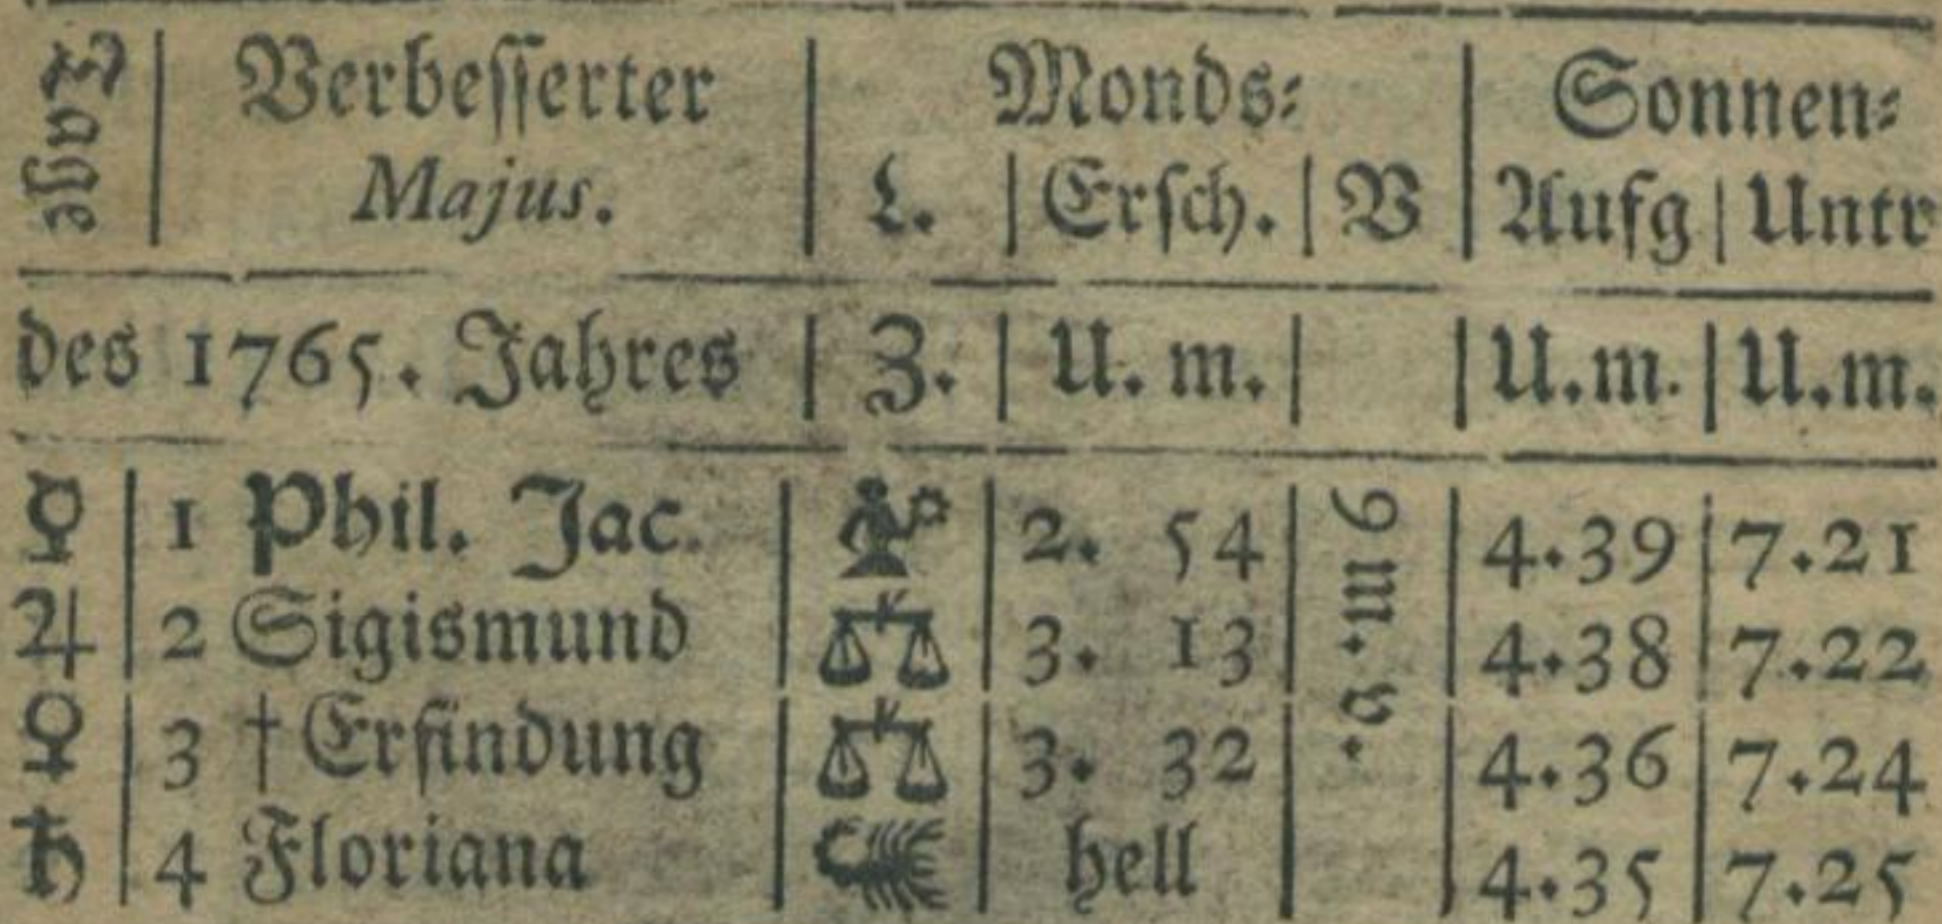 Tage | Verbesserter | Monds: | Sonnen:
Majus. | L. | Ersch. | V | Aufg | Untr
des 1765. Jahres | Z. | U. m. | | U.m. | U.m.
☿ | 1 Phil. Jac. | ♍ | 2. 54 | 9 m. v. | 4.39 | 7.21
♃ | 2 Sigismund | ♎ | 3. 13 | | 4.38 | 7.22
♀ | 3 †Erfindung | ♎ | 3. 32 | | 4.36 | 7.24
♄ | 4 Floriana | ♏ | hell | | 4.35 | 7.25